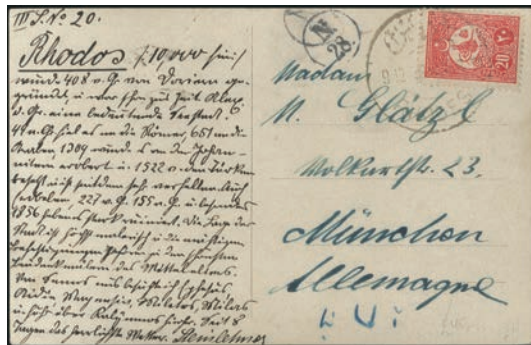 III S. No 20.
Rhodos (10,000 Einw.)
wurde 408 v. C. von Doriern ge-
gründet, u. war schon zur Zeit Alex.
d. Gr. eine bedeutende Seestadt.
44 n. C. fiel es an die Römer, 651 an die
Araber 1309 wurde es von den Johan-
nitern erobert u. 1522 v. den Türken
besetzt u. ist seitdem sehr verfallen. Auch
Erdbeben, 227 v. C. 155 n. C. u. besonders
1856 haben stark ruiniert. Die Lage der
Stadt ist höchst malerisch u. die mächtigen
Befestigungen gehören zu den schönsten
Baudenkmälern des Mittelalters.
Von Samos aus besuchte ich Ephesus
Milet
u. fuhr über Kalymnos hieher. Seit 8
Tagen das herrlichste Wetter.
Madam
M. Glätzl
Volkartstr. 23.
München
Allemagne
N
28
20